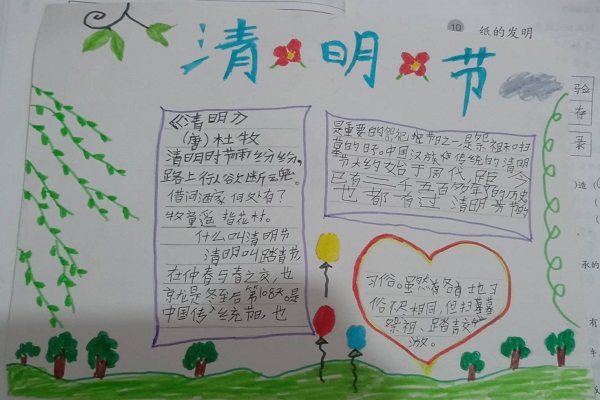 10 纸的发明
清明节
《清明》
(唐)杜牧
清明时节雨纷纷,
路上行人欲断魂。
借问酒家何处有?
牧童遥指花村。
什么叫清明节
清明叫踏青节,
在仲春与春之交,也
就是冬至后第108天。是
中国传统节,也
是重要的祭祀节日之一,是祭祖和扫
墓的日子。中国汉族传统的清明
节大约始于周代,距今
已有二千五百多年的历史
也都有过清明节的
习俗。虽然各有地习
俗不尽相同,但扫墓
祭祖、踏青
验
存
录